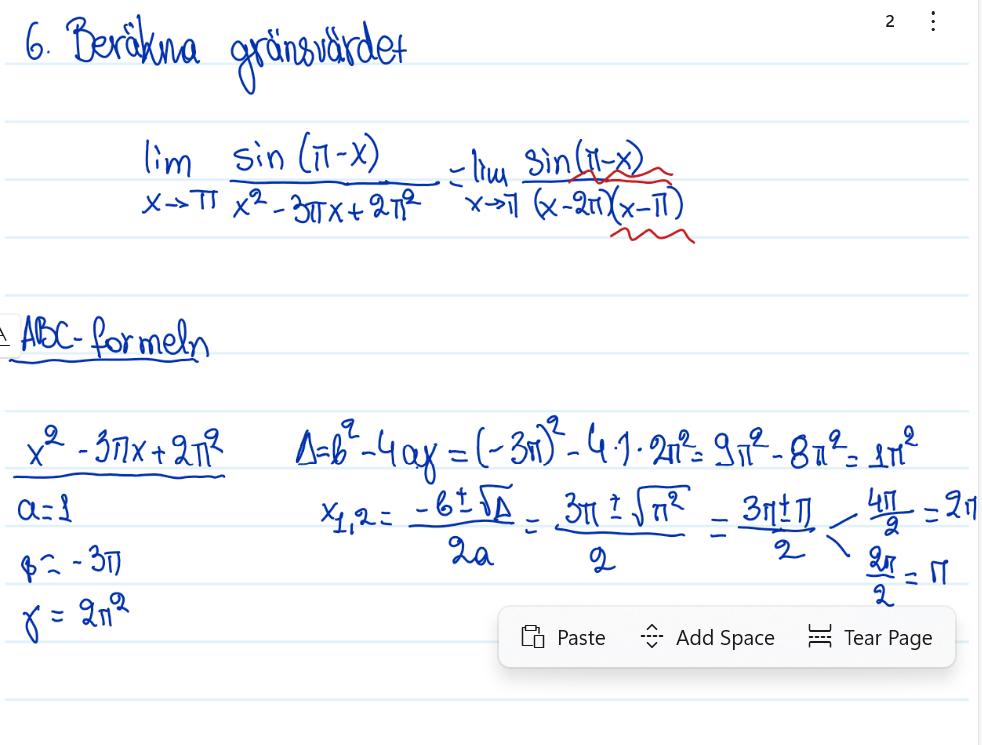 2
6. Beräkna gränsvärdet
lim x→π sin (π-x) / x² - 3πx + 2π² = lim x→π sin(π-x) / (x-2π)(x-π)
A
ABC-formeln
x² - 3πx + 2π²
Δ=β²-4αγ = (-3π)² - 4·1·2π² = 9π² - 8π² = 1π²
a=1
x1,2 = -β±√Δ / 2a = 3π ± √π² / 2 = 3π±π / 2 < 4π/2 = 2π
2π/2 = π
β = -3π
γ = 2π²
Paste Add Space Tear Page